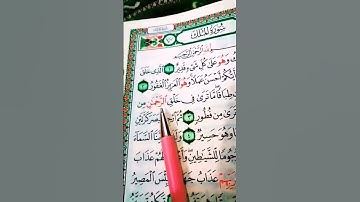 سُورَةُ الْمُلْكِ
اللهِ الرَّحْمٰنِ الرَّحِيْمِ
وَهُوَ عَلٰى كُلِّ شَىْءٍ قَدِيْرُ ۙ﴿١﴾ الَّذِىْ خَلَقَ
اَحْسَنُ عَمَلًا وَهُوَ الْعَزِيْزُ الْغَفُوْرُ ﴿٢﴾
طِبَاقًا مَا تَرٰى فِىْ خَلْقِ الرَّحْمٰنِ مِنْ
تَرٰى مِنْ فُطُوْرٍ ﴿٣﴾ ثُمَّ كَرَّتَيْنِ
وَّهُوَ حَسِيْرٌ ﴿٤﴾ السَّمَآءَ
جُوْمًا لِّلشَّيٰطِيْنِ لَهُمْ عَذَابَ
عَذَابُ الْمَصِيْرُ